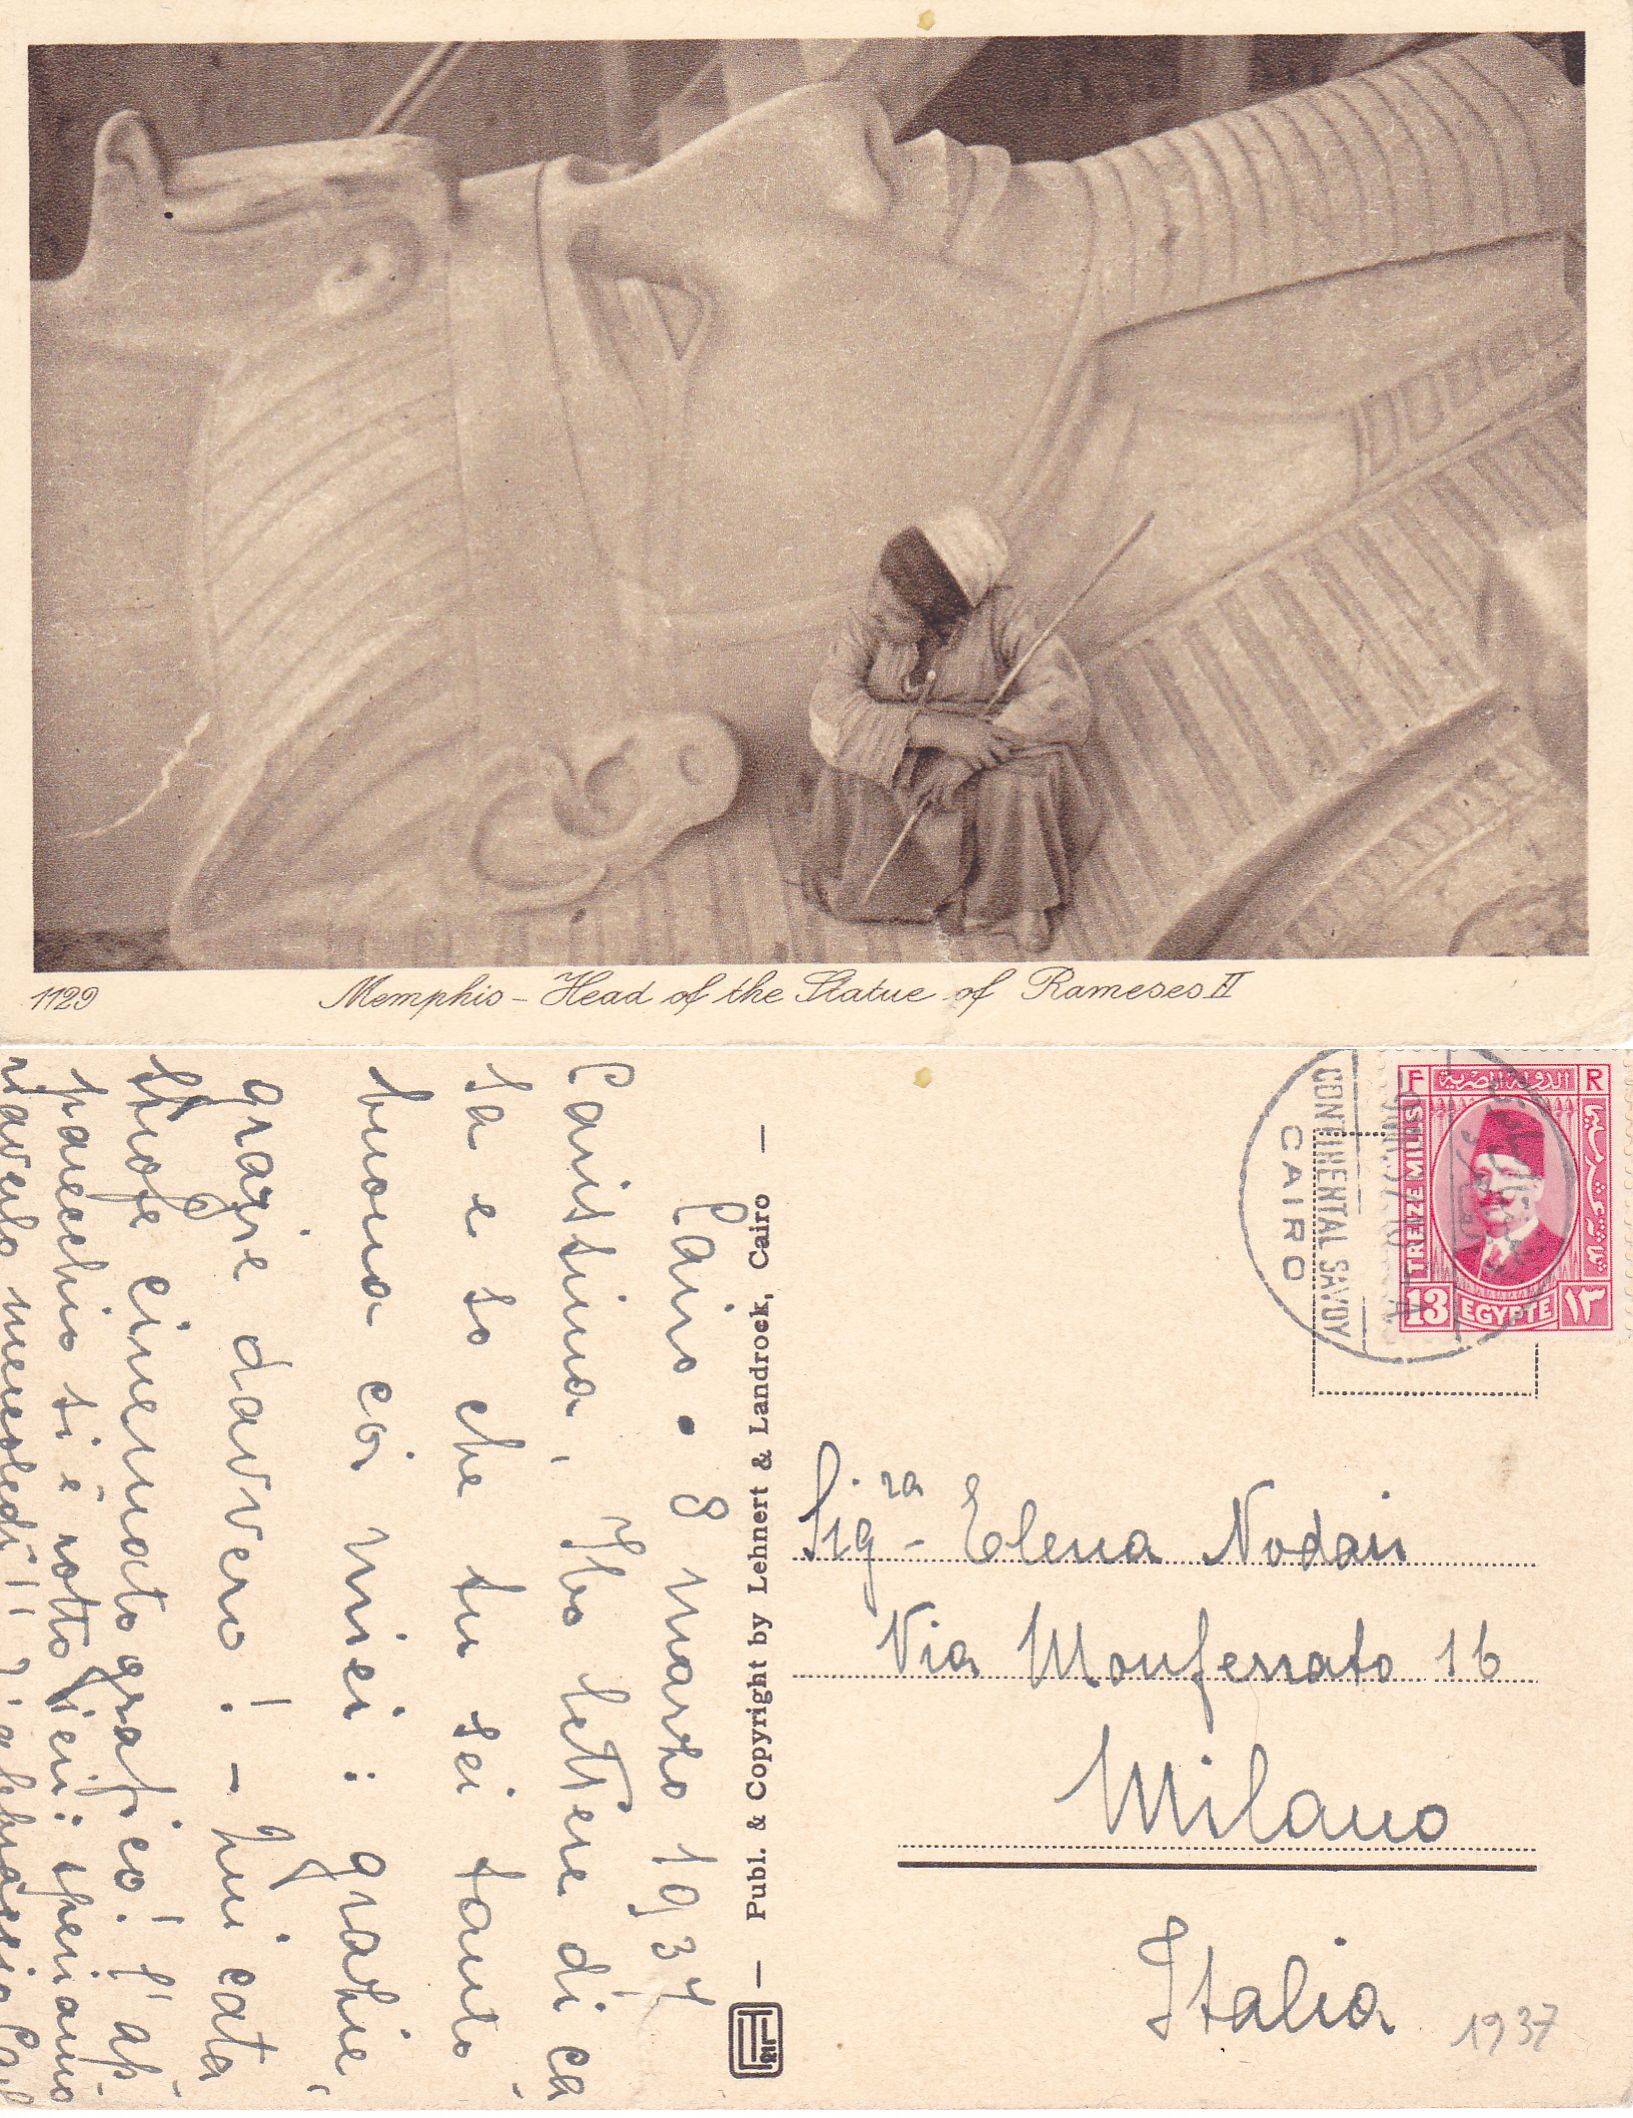 1129
Memphis - Head of the Statue of Rameses II
Cairo . 8 marzo 1937
Carissima, Ho lettere di ca
sa e so che tu sei tanto
buona coi miei : grazie,
grazie davvero! -
cinematografico! L'ap-
parecchio si è rotto ieri: speriamo
riaverlo mercoledì!!
— Publ. & Copyright by Lehnert & Landrock, Cairo —
CONTINENTAL SAVOY
CAIRO
F
R
الدولة المصرية
TREIZE MILLS
13
EGYPTE
١٣
Sig.ra Elena Nodari
Via Monferrato 16
Milano
Italia
1937